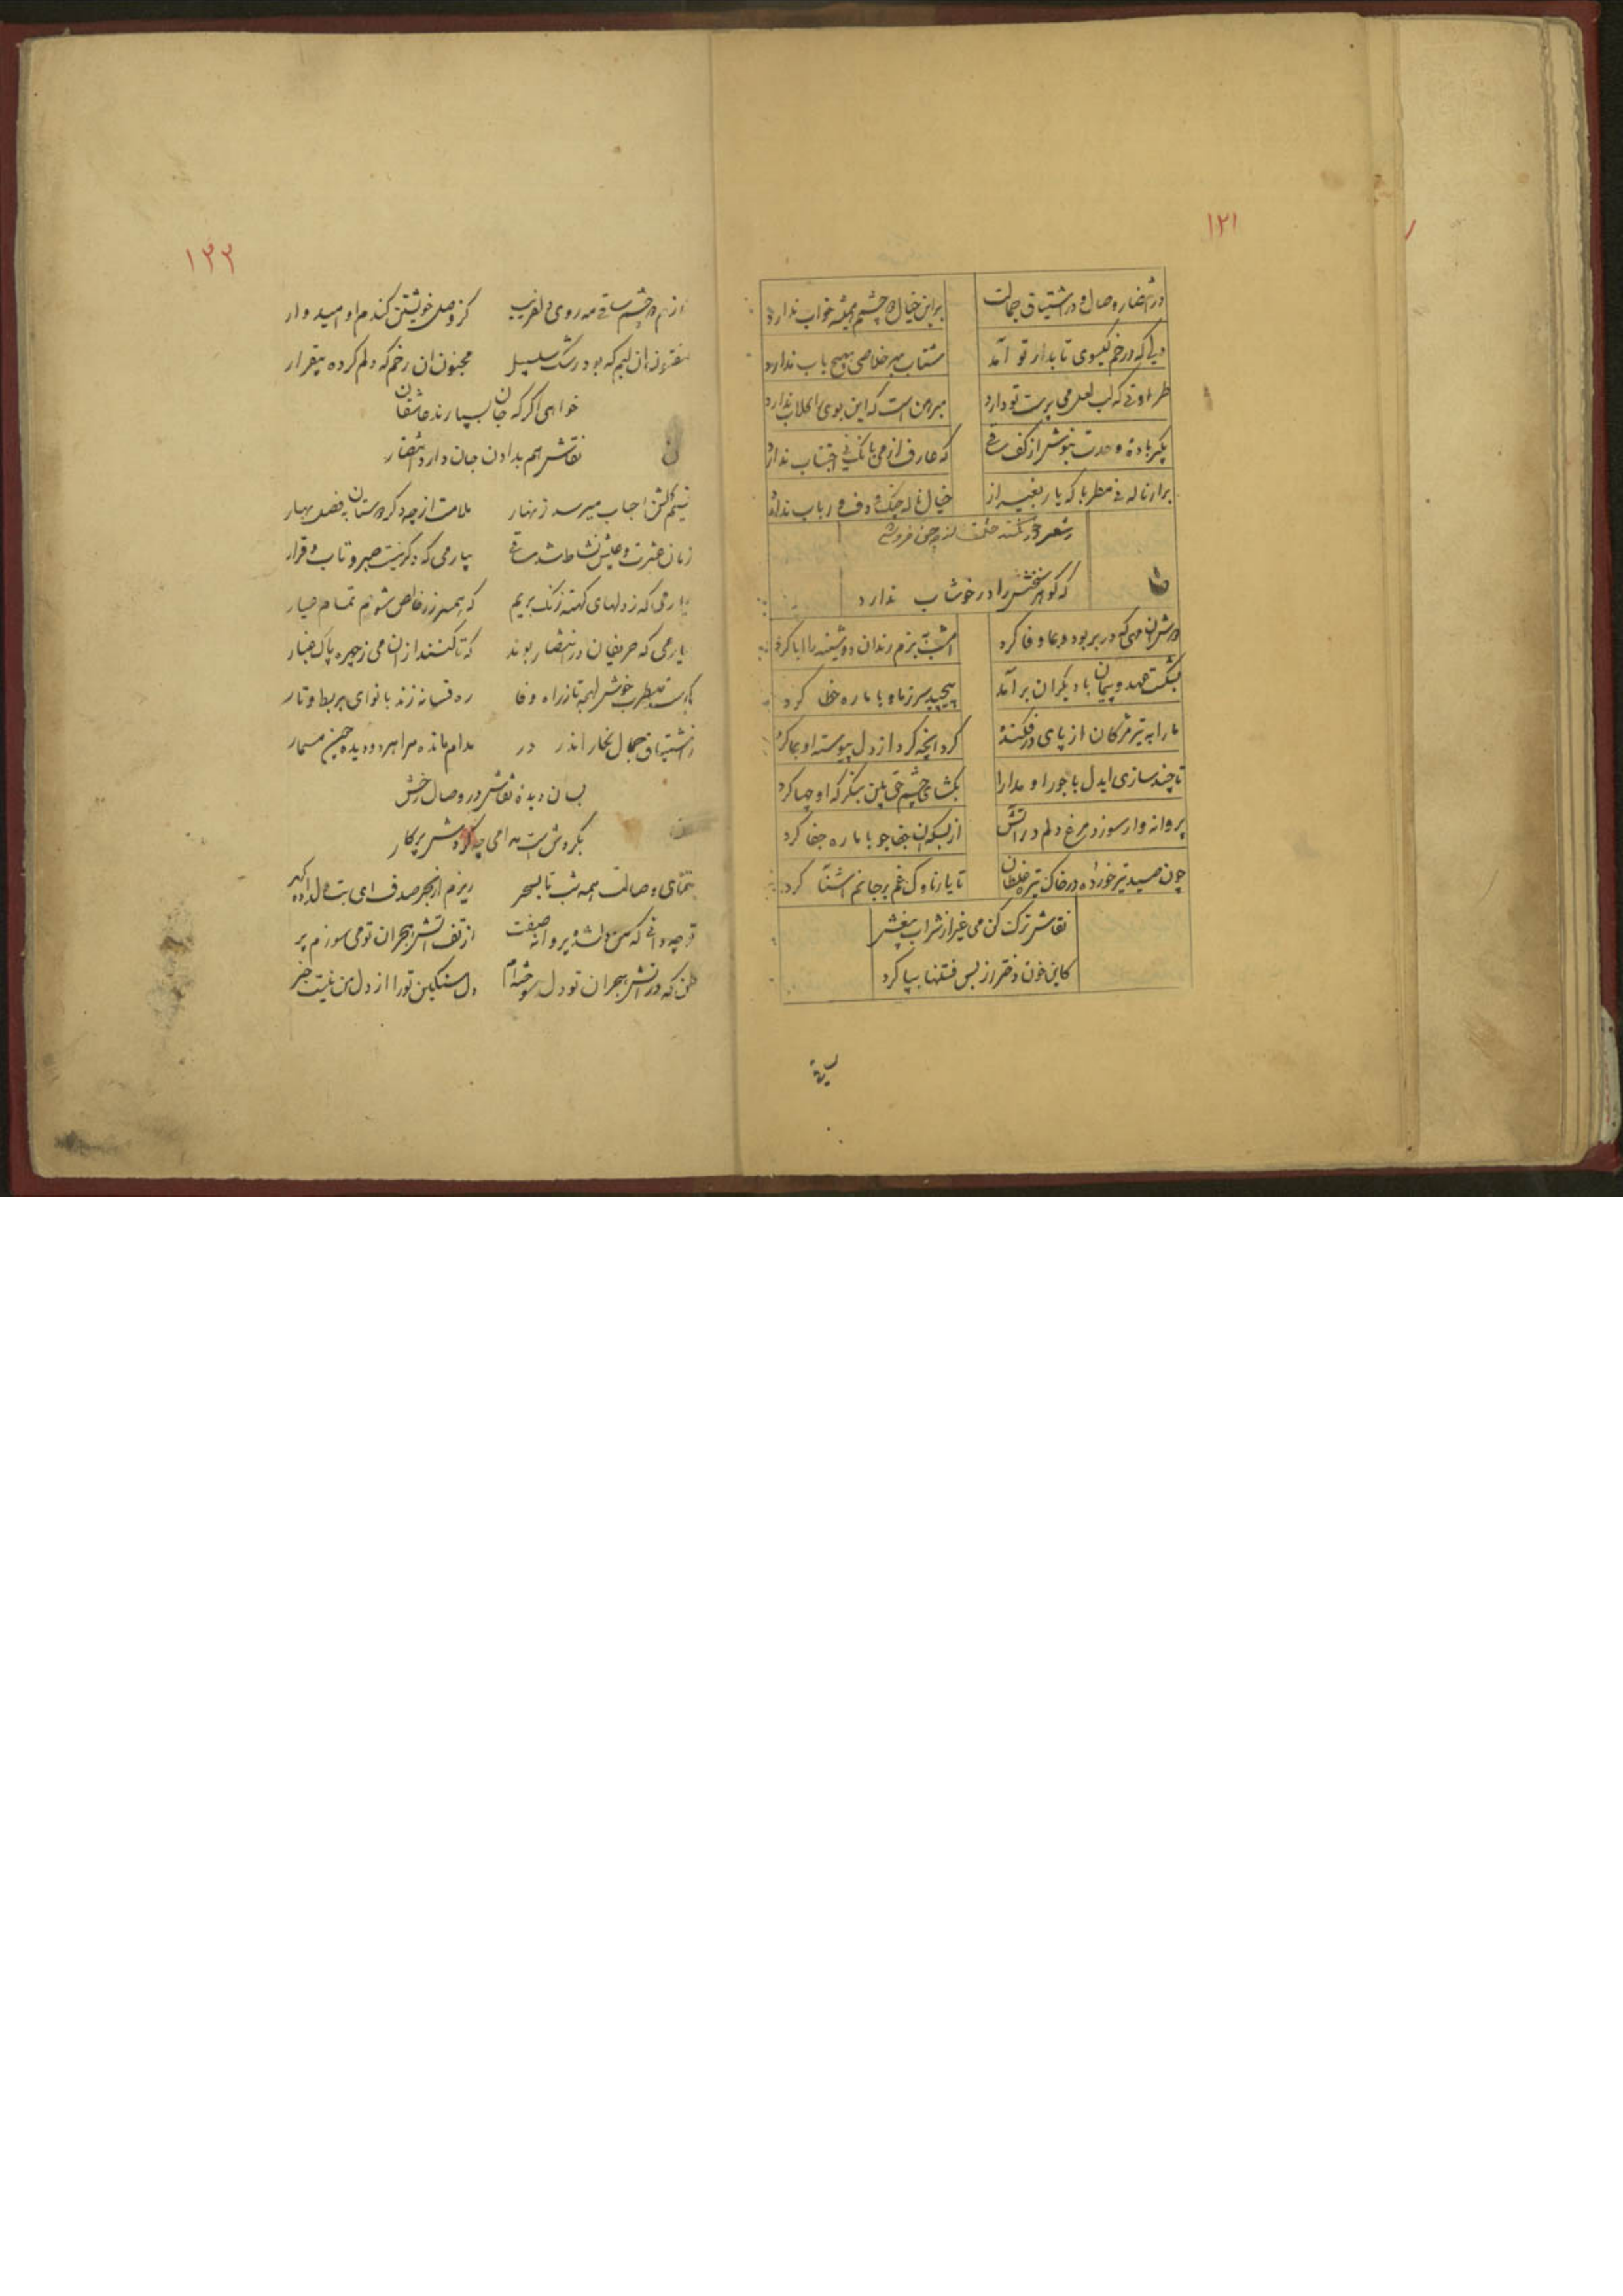 ۱۲۱
در انتظار وصال و در اشتیاق جمالت براین خیال دو چشم همیشه خواب ندارد
دلی که در خم گیسوی تابدار تو آمد شتاب بهر خلاصی بهیچ باب ندارد
طراوتی که لب لعل می پرست تو دارد مبرهن است که این بوی را گلاب ندارد
بگیر بادهٔ وحدت بنوش از کف ساقی که عارف از می با نگ نی اجتناب ندارد
برار ناله نی مطربا که یار بغیر از خیال ناله چنگ و دف و رباب ندارد
شعر
که گوهر سخنش را در خوشاب ندارد
دوش ان مهی که در بر بود و بما وفا کرد امشب بزم رندان دوشینه را ابا کرد
بشکست عهد و پیمان با دیگران برآمد پیچید سر ز ما و با ما ره خطا کرد
ما را به تیر مژگان از پای در فکنده کرد انچه کرد از دل پیوسته او بما کرد
تا چند سازی ایدل با جور او مدارا بگشای چشم حق بین بنگر که او چها کرد
پروانه وار سوزد مرغ دلم در اتش از بسکه ان جفا جو با ما ره جفا کرد
چون صید تیر خورده در خاک تیره غلطان تا یار ناوک غم بر جانم اشنا کرد
نقاش ترک کن می غیر از شراب بیغش
کاین خون دختر رز بس فتنها بپا کرد
۱۲۲
از هر دو چشم ساقی مه روی دلفریب کز وصل خویشتن کندم او امیدوار
ان لبم که بود رشک سلسبیل مجنون ان رخم که دلم کرده بیقرار
خواهی اگر که جان بسپارند عاشقان
نقاش هم بدادن جان دارد انتظار
نسیم گلشن احباب میرسد زنهار ملامت از چه دگر دوستان به فصل بهار
زمان عشرت و عیش و نشاط شد ساقی بیار می که دگر نیست صبر و تاب و قرار
بیار می که ز دلهای کهنه زنگ بریم که همسر زر خالص شویم تمام عیار
بیار می که حریفان در انتظار بوند که تا کنند از ان می ز چهره پاک غبار
مطرب خوش لهجه تا ز راه وفا ره فسانه زند با نوای بربط و تار
ز اشتیاق جمال نگار اندر در مدام مانده مرا هر دو دیده چون مسمار
بسان دیدهٔ نقاش در وصال رخش
بگردش است مدامی چه گردش پرکار
بتمنای وصالت همه شب تا بسحر ریزم از بحر صدف ای بت دل داده گهر
تو چه دانی که من دلشده پروانه صفت از تف اتش هجران تو می سوزم پر
من که در اتش هجران تو دل سوخته ام دل سنگین تو را از دل من نیست خبر